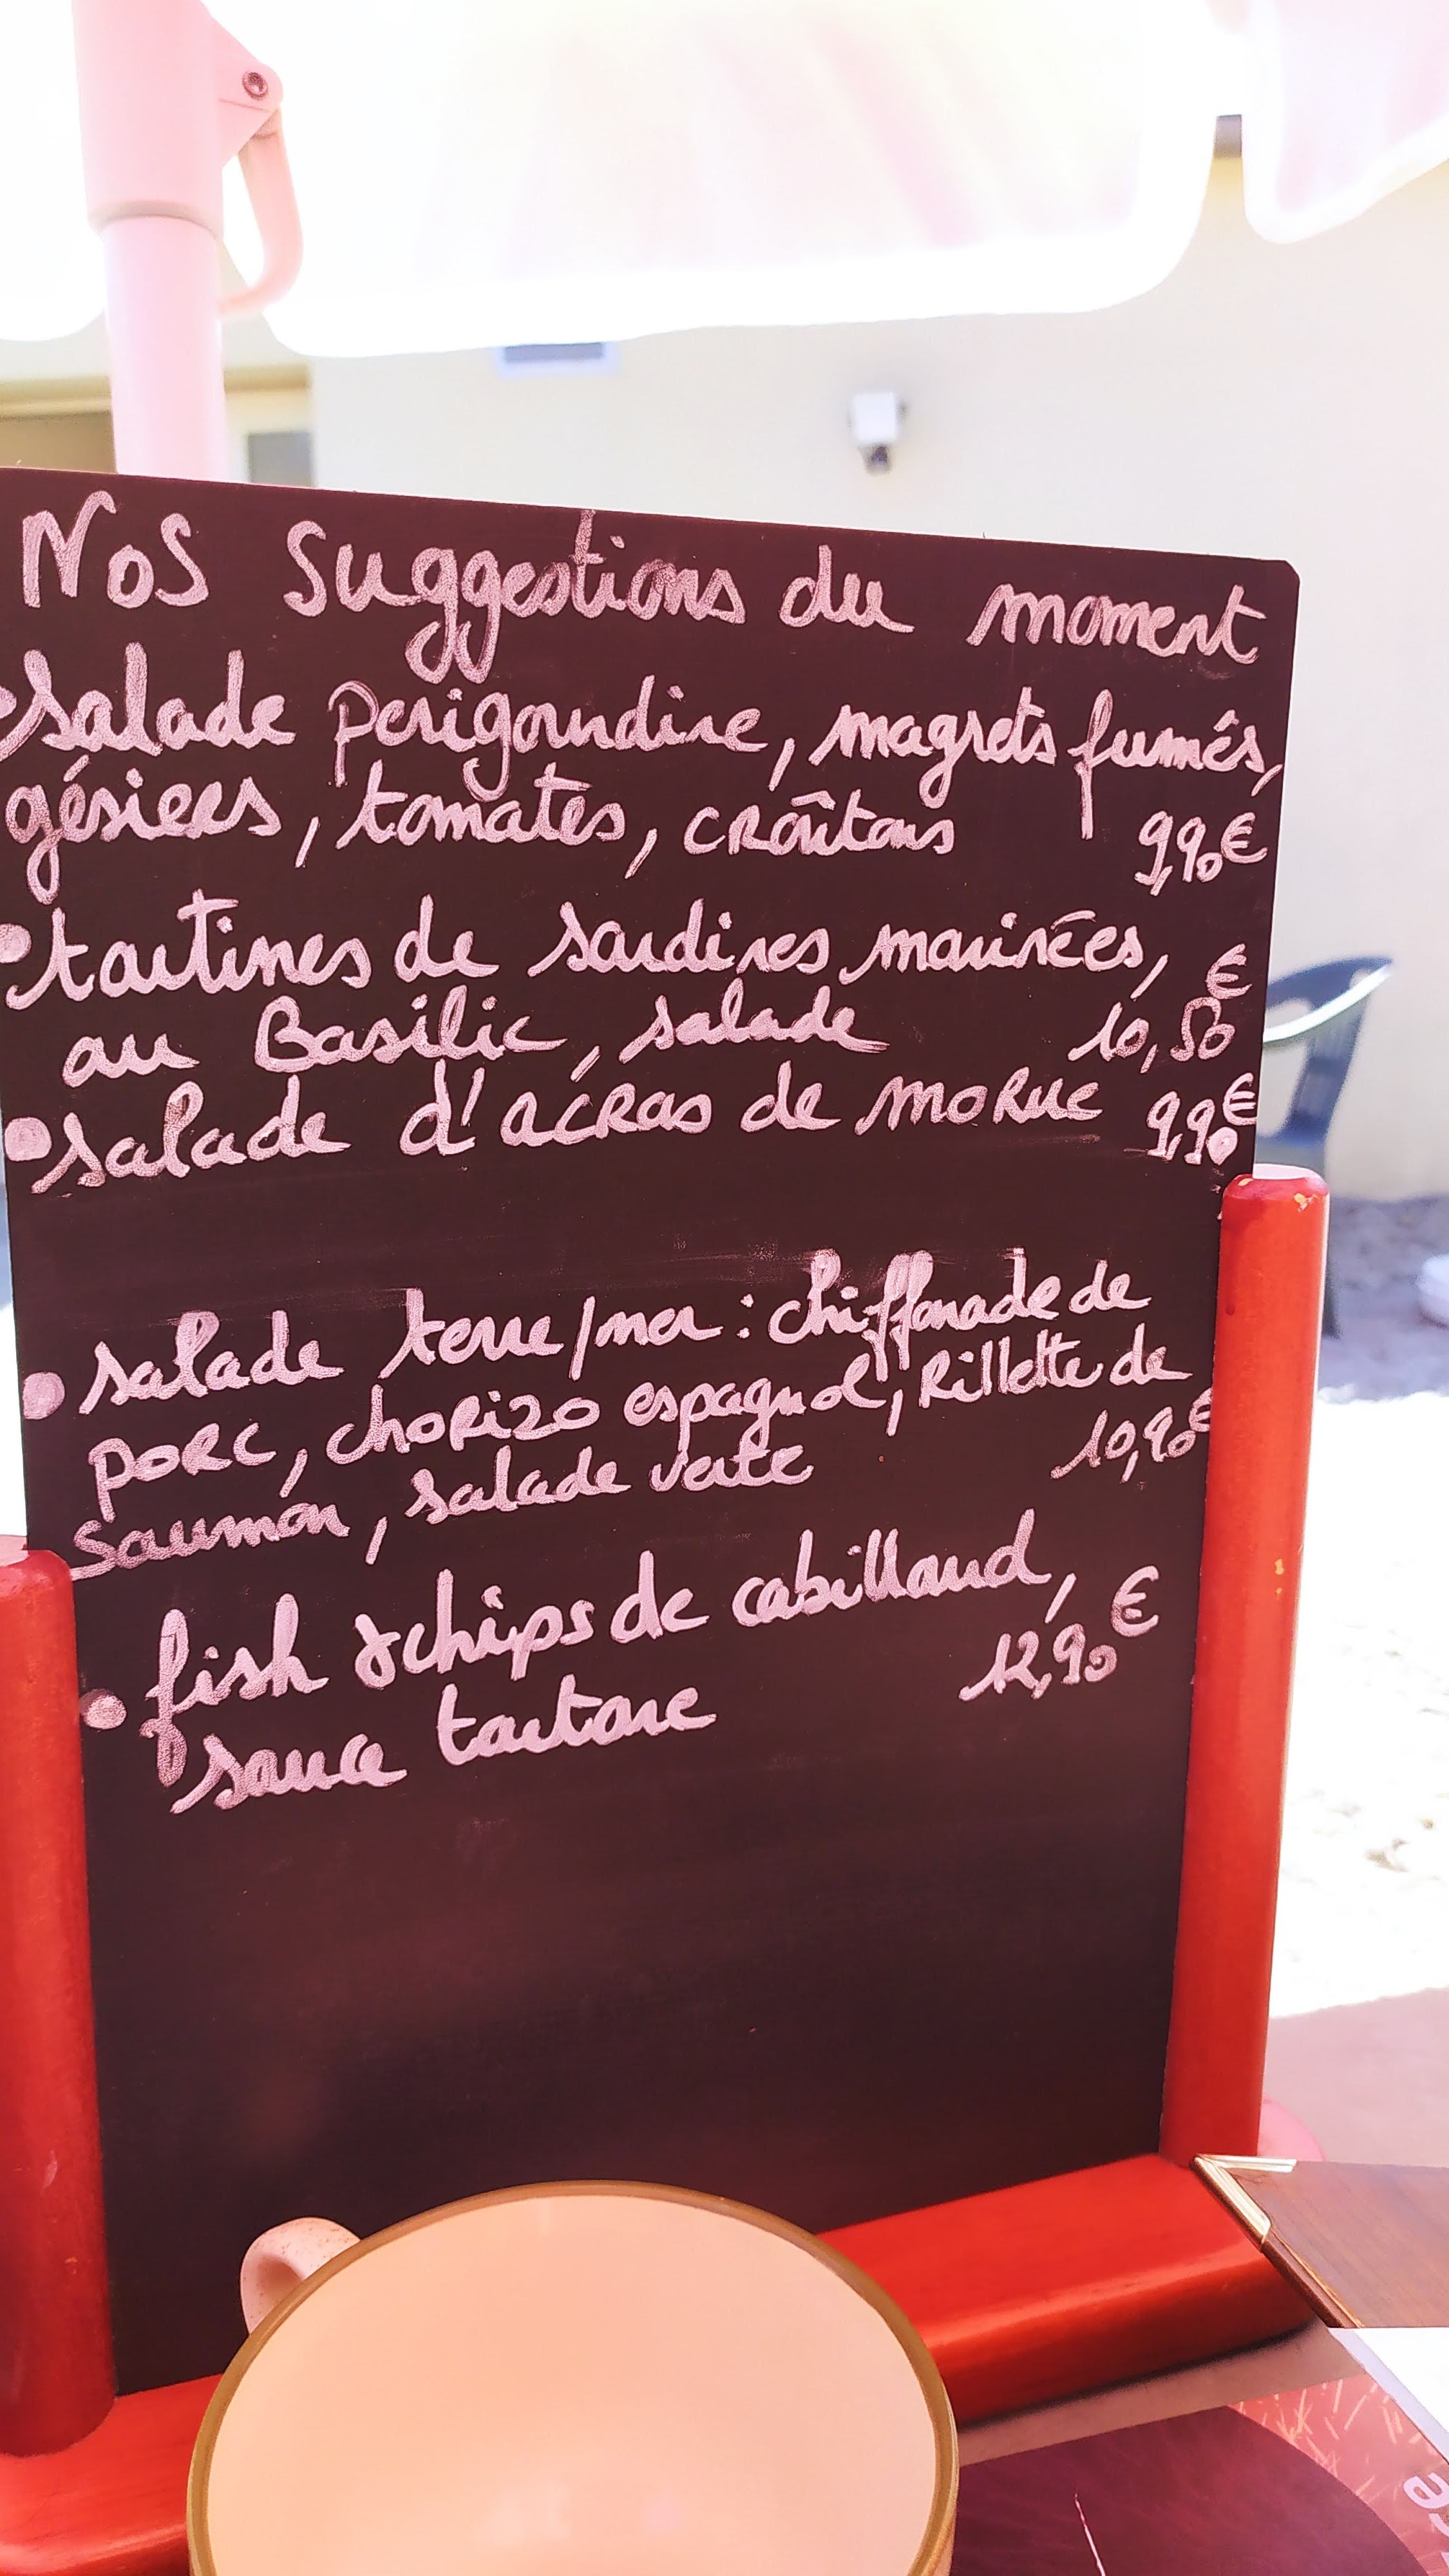 Nos suggestions du moment
• salade perigourdine, magrets fumés,
gésiers, tomates, croûtons 9,90€
• tartines de sardines marinées,
au Basilic, salade 10,50€
• salade d'acras de morue 9,90€
• salade terre/mer : chiffonade de
porc, chorizo espagnol, Rillette de
saumon, salade verte 10,90€
• fish & chips de cabillaud,
sauce tartare 12,90€